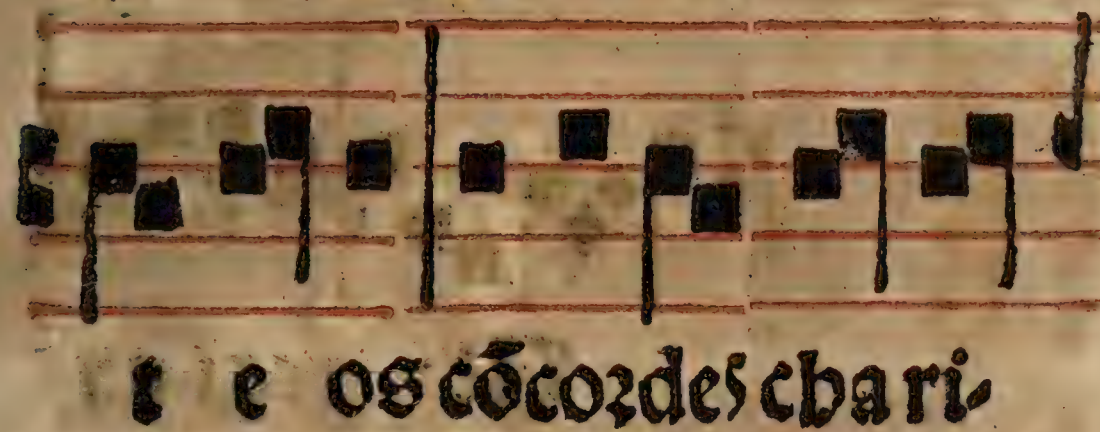 r e os cōcordes chari-